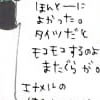 ほんとーに
よかった。
タイツだと
モコモコするのよ
またぐらが。
エナメルの